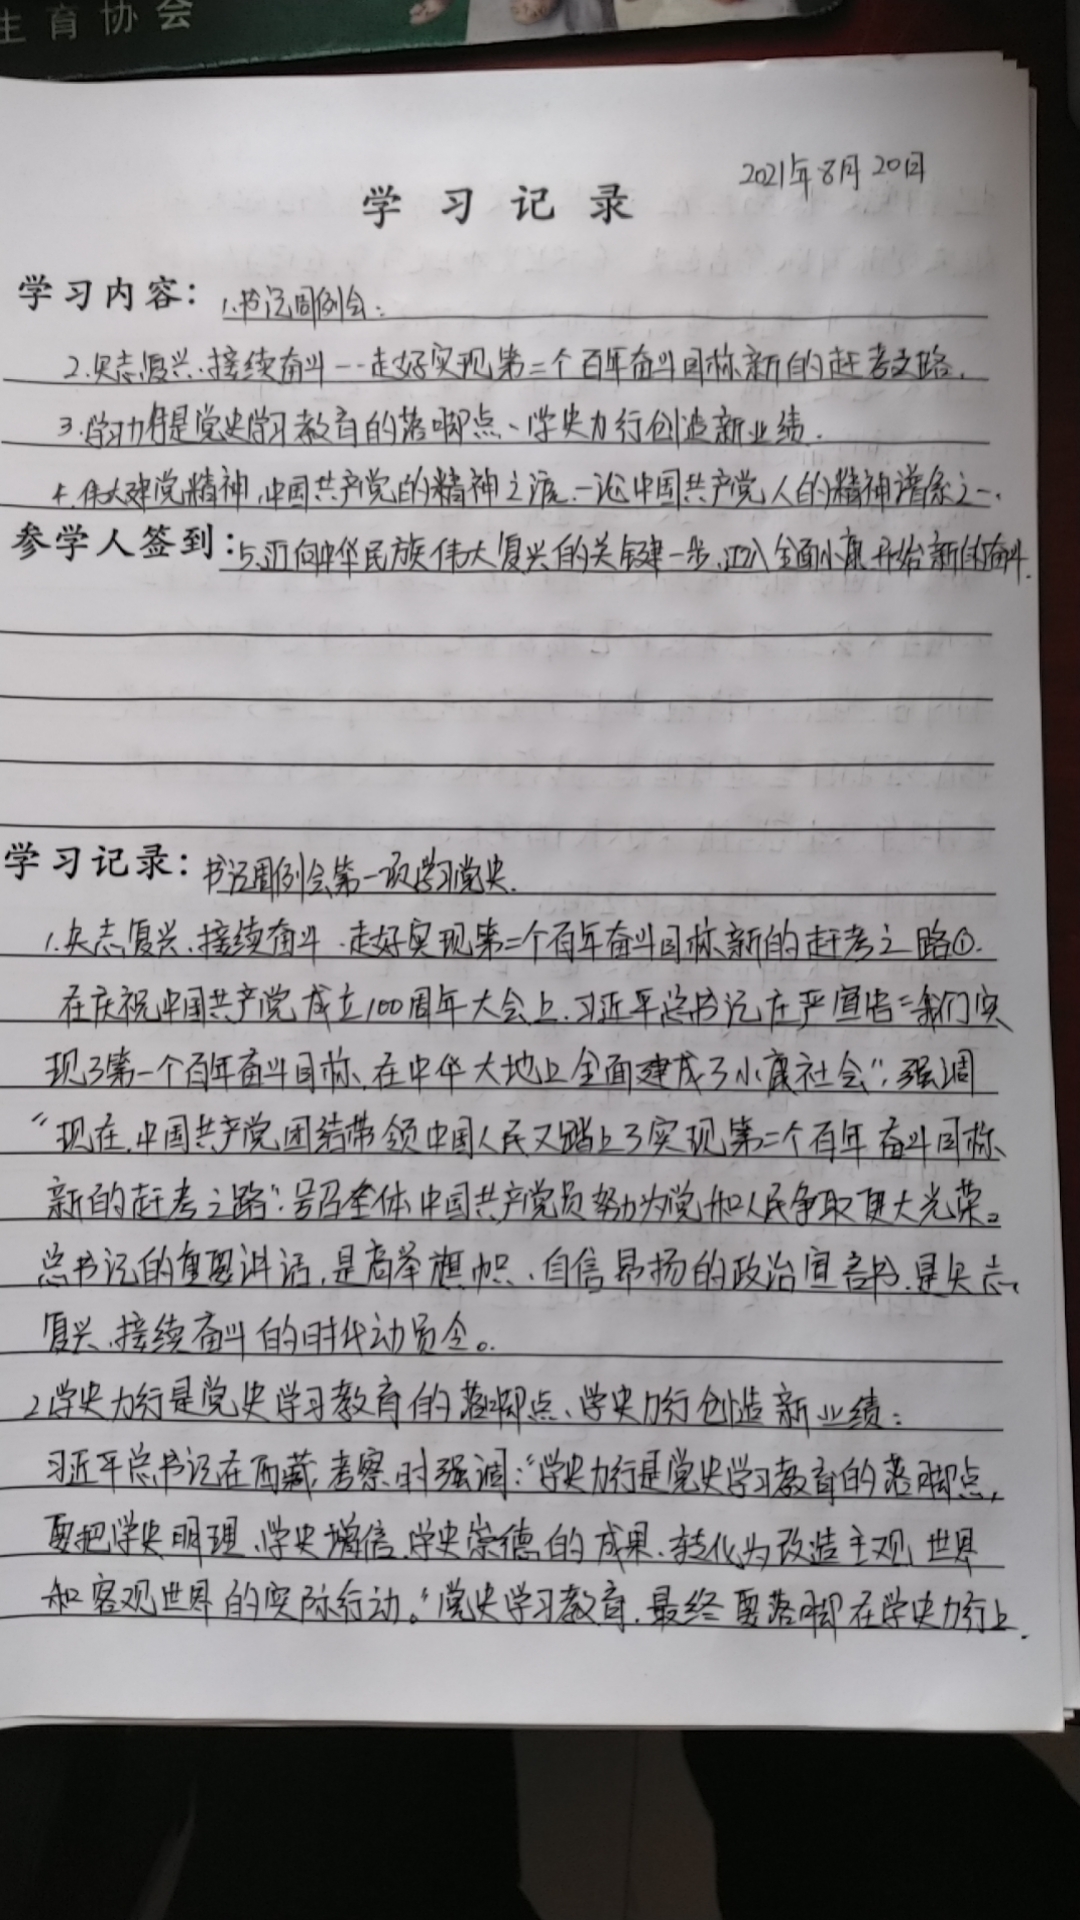 生育协会
2021年8月20日
学习记录
学习内容：1.书记周例会：
2.矢志复兴、接续奋斗--走好实现第二个百年奋斗目标新的赶考之路.
3.学习力行是党史学习教育的落脚点、学史力行创造新业绩.
4.伟大建党精神,中国共产党的精神之源.一论中国共产党人的精神谱系之一.
参学人签到：5.迈向中华民族伟大复兴的关键一步.迈入全面小康开始新的奋斗.
学习记录：书记周例会第一议学习党史.
1.矢志复兴、接续奋斗.走好实现第二个百年奋斗目标新的赶考之路①.
在庆祝中国共产党成立100周年大会上.习近平总书记庄严宣告：“我们实
现了第一个百年奋斗目标,在中华大地上全面建成了小康社会”,强调
“现在,中国共产党团结带领中国人民又踏上了实现第二个百年奋斗目标
新的赶考之路”.号召全体中国共产党员努力为党和人民争取更大光荣。
总书记的重要讲话,是高举旗帜、自信昂扬的政治宣言书.是矢志、
复兴、接续奋斗的时代动员令。
2学史力行是党史学习教育的落脚点、学史力行创造新业绩：
习近平总书记在西藏考察时强调：“学史力行是党史学习教育的落脚点,
要把学史明理、学史增信、学史崇德的成果、转化为改造主观世界
和客观世界的实际行动。“党史学习教育,最终要落脚在学史力行上.